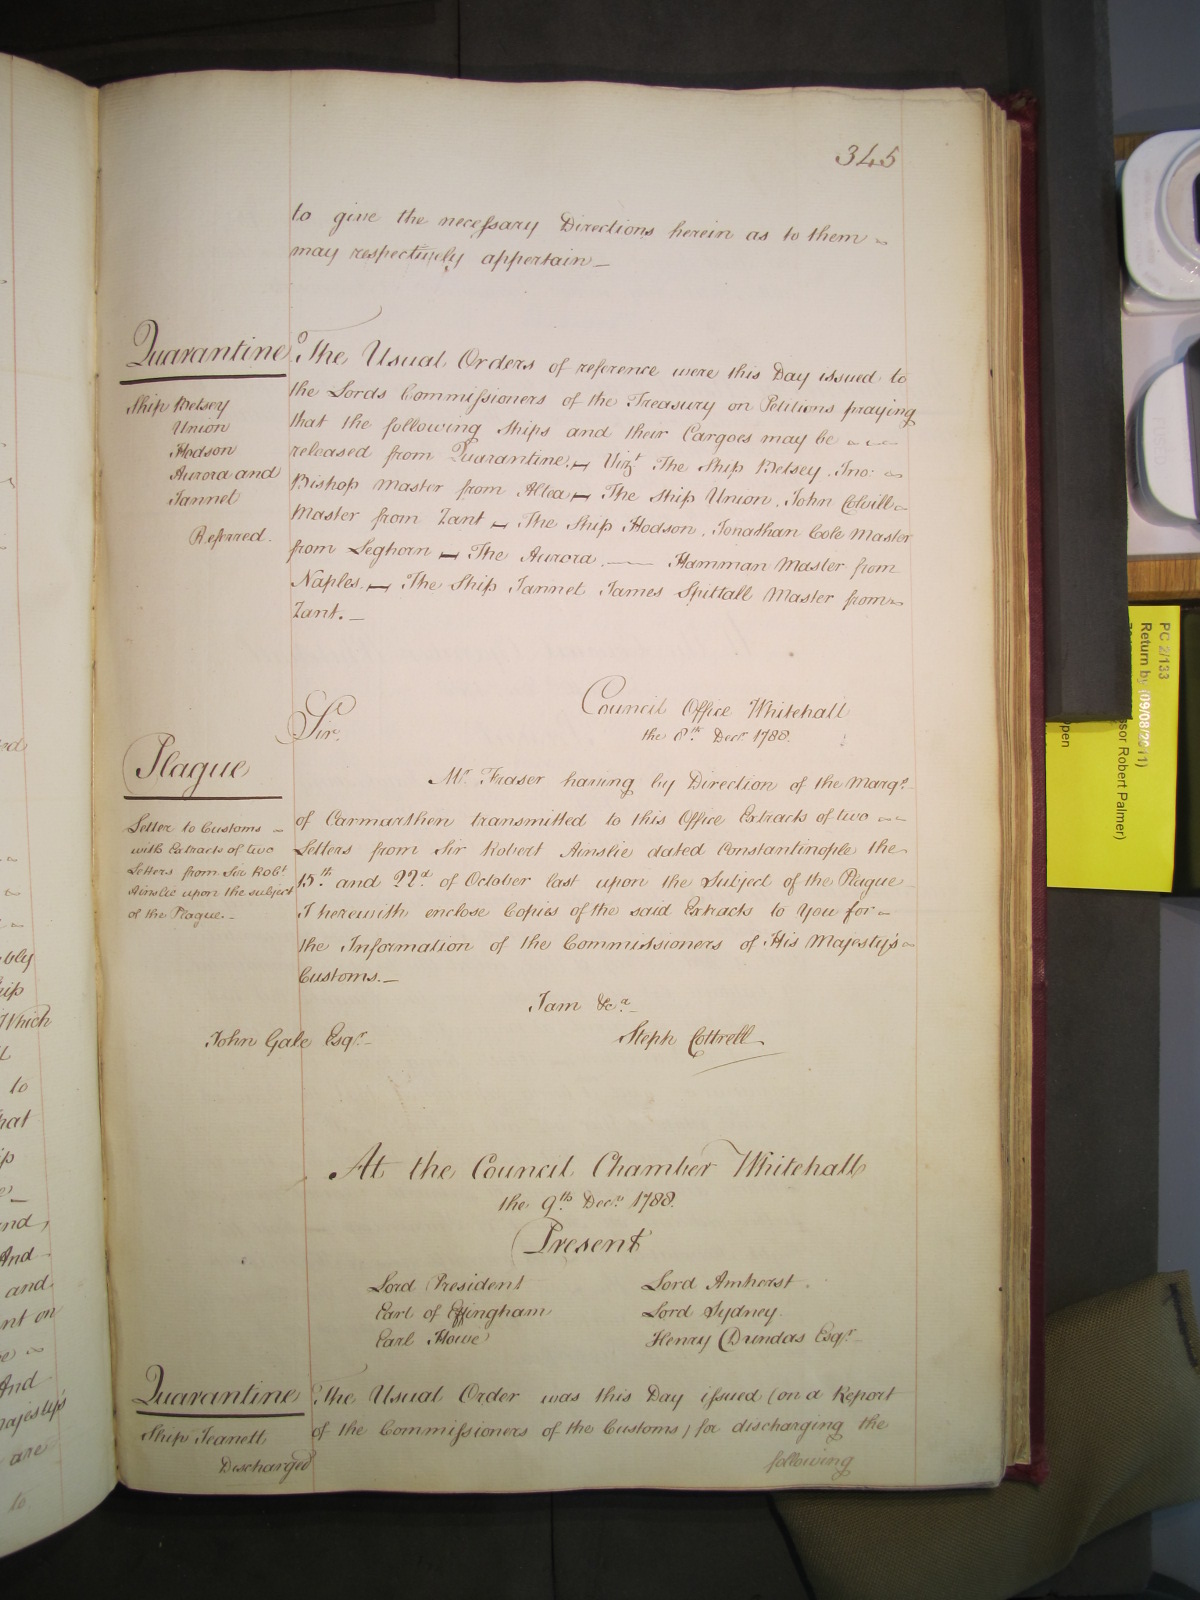 345
to give the necessary Directions herein as to them
may respectively appertain _
Quarantine
Ship Betsey
Union
Hodson
Aurora and
Jannet
Referred.
The Usual Orders of reference were this Day issued to
the Lords Commissioners of the Treasury on Petitions praying
that the following Ships and their Cargoes may be
released from Quarantine. _ Vizt. The Ship Betsey, Jno:
Bishop Master from Altea _ The Ship Union, John Colvill
Master from Zant _ The Ship Hodson, Jonathan Cole Master
from Leghorn _ The Aurora, —— Hamman Master from
Naples. _ The Ship Jannet James Spittall Master from
Zant. _
Council Office Whitehall
the 8th. Decr. 1788.
Sir,
Plague
Letter to Customs
with Extracts of two
Letters from Sir Robt.
Ainslie upon the subject
of the Plague. _
Mr. Fraser having by Direction of the Marqs.
of Carmarthen transmitted to this Office Extracts of two
Letters from Sir Robert Ainslie dated Constantinople the
15th. and 22d. of October last upon the Subject of the Plague
I herewith enclose Copies of the said Extracts to You for
the Information of the Commissioners of His Majesty's
Customs. _
I am &ca. _
John Gale Esqr. _
Steph Cottrell
At the Council Chamber Whitehall
the 9th. Decr. 1788.
Present
Lord President
Earl of Effingham
Earl Howe
Lord Amherst.
Lord Sydney.
Henry Dundas Esqr.
Quarantine
Ship Jeanett
Discharged
The Usual Order was this Day issued (on a Report
of the Commissioners of the Customs) for discharging the
following
bly
Which
to
hat
And
and
nt on
And
majesty's
are
to
PC 2/133
Return by (09/08/2011)
ssor Robert Palmer)
ypen